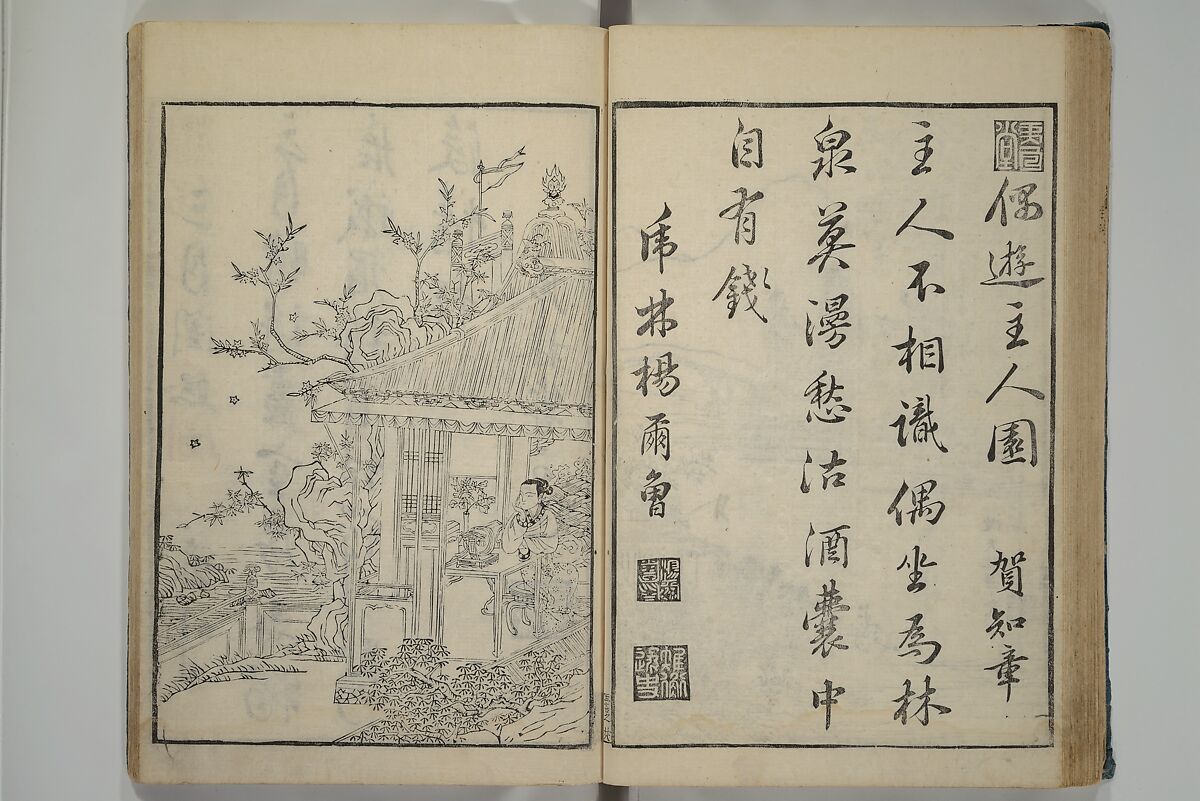 偶遊主人園 賀知章
主人不相識偶坐為林
泉莫漫愁沽酒囊中
自有錢
乕林楊爾曾